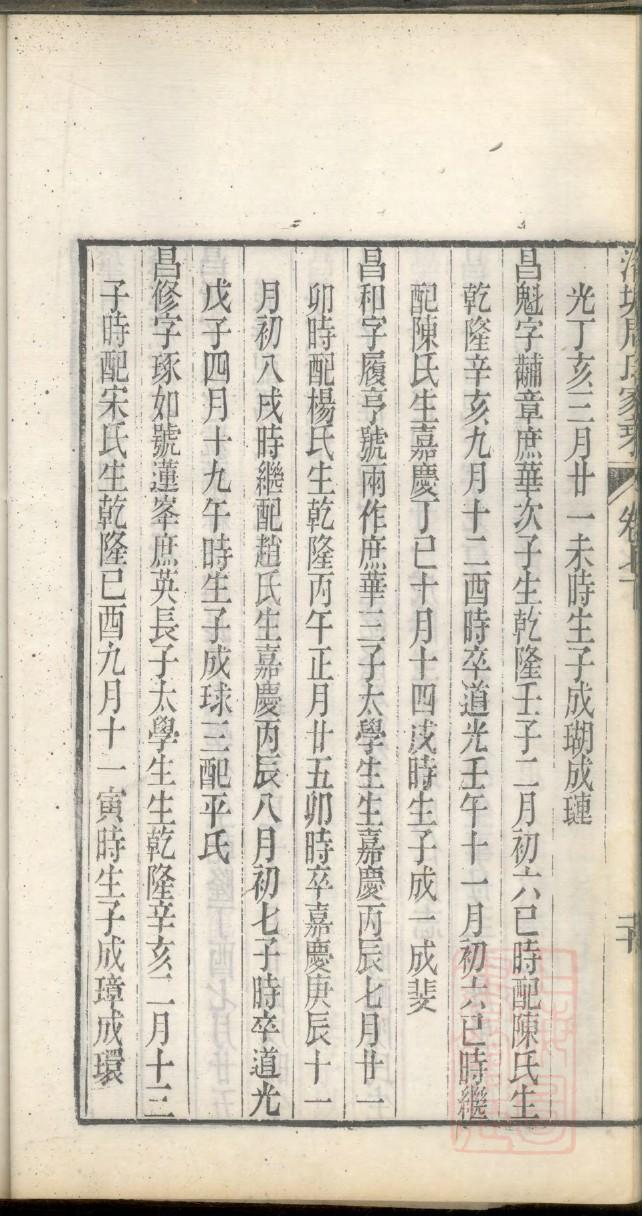 周氏家
卷七
光丁亥三月廿一未時生子成瑚成璉
昌魁字黼章庶華次子生乾隆壬子二月初六巳時配陳氏生
乾隆辛亥九月十二酉時卒道光壬午十一月初六巳時繼
配陳氏生嘉慶丁巳十月十四戌時生子成一成斐
昌和字履亨號兩作庶華三子太學生生嘉慶丙辰七月廿一
卯時配楊氏生乾隆丙午正月廿五卯時卒嘉慶庚辰十一
月初八戌時繼配趙氏生嘉慶丙辰八月初七子時卒道光
戊子四月十九午時生子成球三配平氏
昌修字琢如號蓮峯庶英長子太學生生乾隆辛亥二月十三
子時配宋氏生乾隆己酉九月十一寅時生子成璋成環